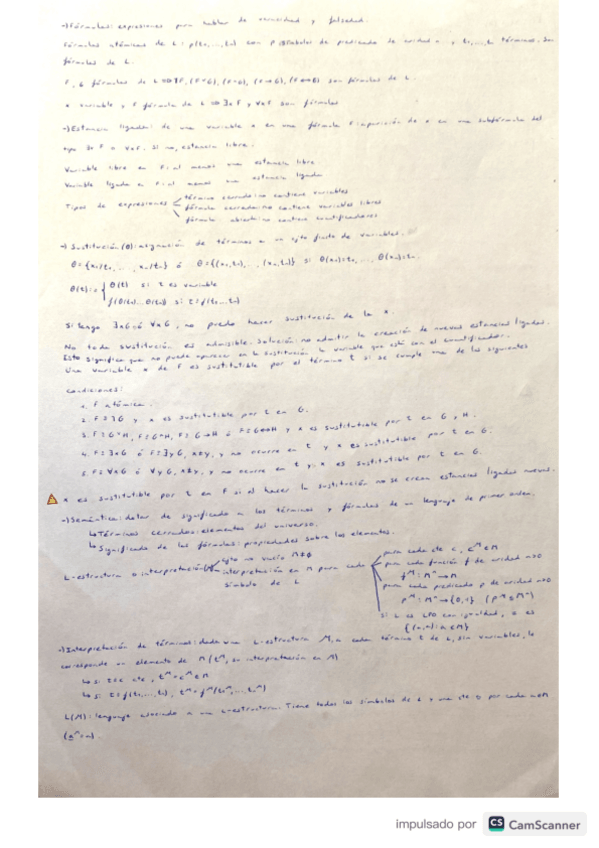 →Fórmulas: expresiones para hablar de veracidad y falsedad.
Fórmulas atómicas de L: p(t₁,...,tₙ) con p símbolos de predicado de aridad n y t₁,...,tₙ términos. Son
fórmulas de L.
F, G fórmulas de L ⇒ ¬F, (F∧G), (F∨G), (F→G), (F↔G) son fórmulas de L.
x variable y F fórmula de L ⇒ ∃xF y ∀xF son fórmulas
→Estancia ligada: de una variable x en una fórmula F: aparición de x en una subfórmula del
tipo ∃xF o ∀xF. Si no, estancia libre.
Variable libre en F: al menos una estancia libre
Variable ligada en F: al menos una estancia ligada
Tipos de expresiones
término cerrado: no contiene variables
fórmula cerrada: no contiene variables libres
fórmula abierta: no contiene cuantificadores
→ Sustitución (θ): asignación de términos a un cjto finito de variables.
θ = {x₁/t₁, ..., xₙ/tₙ} ó θ = {(x₁,t₁), ..., (xₙ,tₙ)} si θ(x₁)=t₁, ..., θ(xₙ)=tₙ.
θ(t) = { θ(t) si t es variable
f(θ(t₁)...θ(tₙ)) si t = f(t₁...tₙ)
Si tengo ∃xG ó ∀xG, no puedo hacer sustitución de la x.
No toda sustitución es admisible. Solución: no admitir la creación de nuevas estancias ligadas.
Esto significa que no puede aparecer en la sustitución la variable que esté con el cuantificador.
Una variable x de F es sustituible por el término t si se cumple una de las siguientes
condiciones:
1. F atómica.
2. F = ¬G y x es sustituible por t en G.
3. F = G∧H, F = G∨H, F = G→H ó F = G↔H y x es sustituible por t en G y H.
4. F = ∃xG ó F = ∃yG, x≠y, y no ocurre en t y x es sustituible por t en G.
5. F = ∀xG ó ∀yG, x≠y, y no ocurre en t y x es sustituible por t en G.
x es sustituible por t en F si al hacer la sustitución no se crean estancias ligadas nuevas.
→Semántica: dotar de significado a los términos y fórmulas de un lenguaje de primer orden.
↳Términos cerrados: elementos del universo.
↳Significado de las fórmulas: propiedades sobre los elementos.
L-estructura o interpretación (M)
cjto no vacío M≠∅
interpretación en M para cada
símbolo de L
para cada cte c, cᴹ ∈ M
para cada función f de aridad n>0
fᴹ: Mⁿ→M
para cada predicado p de aridad n>0
pᴹ: Mⁿ→{0,1} (pᴹ ⊆ Mⁿ)
si L es LPO con igualdad, = es
{(a,a): a ∈ M}
→Interpretación de términos: dada una L-estructura M, a cada término t de L, sin variables, le
corresponde un elemento de M (tᴹ, su interpretación en M)
↳ si t = c cte, tᴹ = cᴹ ∈ M
↳ si t = f(t₁,...,tₙ), tᴹ = fᴹ(t₁ᴹ,...,tₙᴹ)
L(M): lenguaje asociado a una L-estructura: Tiene todos los símbolos de L y una cte a por cada a∈M
(aᴹ = a).
impulsado por CS CamScanner